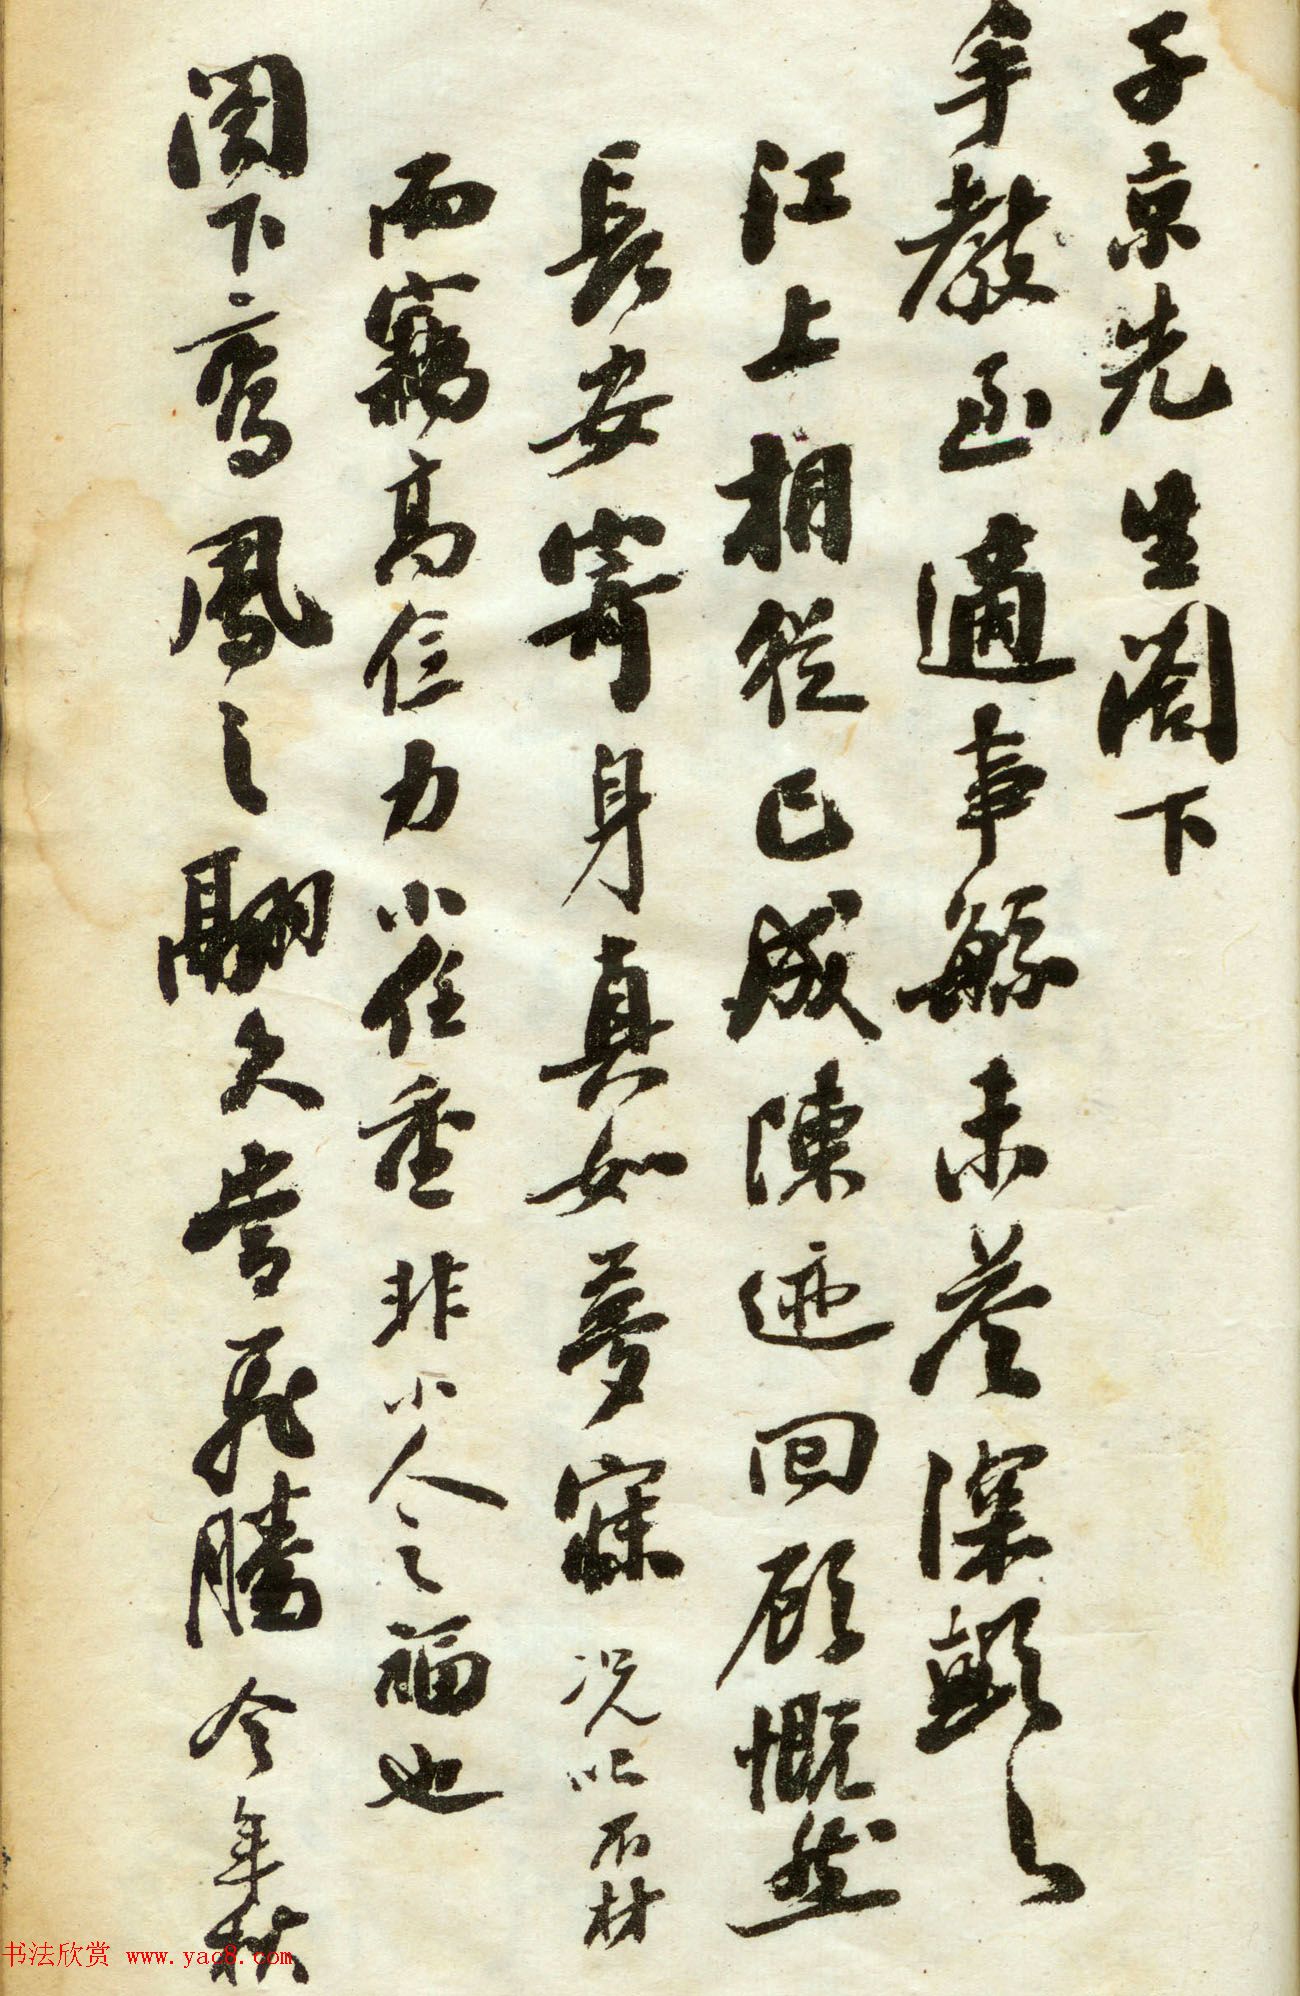 子京先生阁下
手教函適事繇未荅深顧之
江上相從已成陳迹回顧慨然
長安寄身真如夢寐况以不材
而竊高位力小任重非小人之福也
阁下鸾鳳之翮久當飛騰今年秋
书法欣赏 www.yac8.com